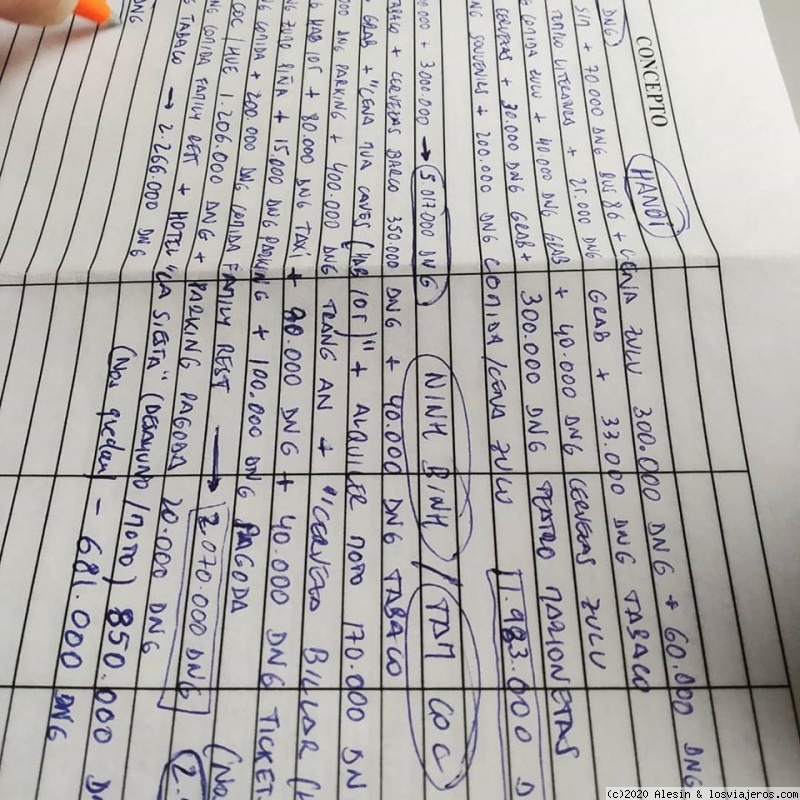 CONCEPTO
HANOI
DNG)
SIM + 70.000 DNG BUS 86 + CENA ZULU 300.000 DNG + 60.000 DNG
TEMPLO LITERATURA + 25.000 DNG GRAB + 33.000 DNG TABACO
COMIDA ZULU + 40.000 DNG GRAB + 40.000 DNG CERVEZAS ZULU
CERVEZAS + 30.000 DNG GRAB + 300.000 DNG TEATRO MARIONETAS
NG SOUVENIRS + 200.000 DNG COMIDA/CENA ZULU 11.983.000 D
+ 3.000.000 → 5.017.000 DNG
NINH BINH / TAM COC
TABACO + CERVEZAS BARCO 350.000 DNG + 40.000 DNG TABACO
GRAB + "CENA MUA CAVES (HAB 105)" + ALQUILER MOTO 170.000 DN
000 DNG PARKING + 400.000 DNG TRANG AN + "CERVEZA BILLAR (H
HAB 105 + 80.000 DNG TAXI + 90.000 DNG + 40.000 DNG TICKET
NG ZUMO PIÑA + 15.000 DNG PARKING + 100.000 DNG PAGODA
NG COMIDA + 200.000 DNG COMIDA FAMILY REST → 2.070.000 DNG
COC / HUE 1.206.000 DNG + PARKING PAGODA 20.000 DNG
NG COMIDA FAMILY REST + HOTEL "LA SIESTA" (DESAYUNO/MOTO) 850.000 D
TABACO → 2.266.000 DNG (Nos quedan) - 681.000 DNG
DNG
(Na
(2.
(c)2020 Alesin & losviajeros.com